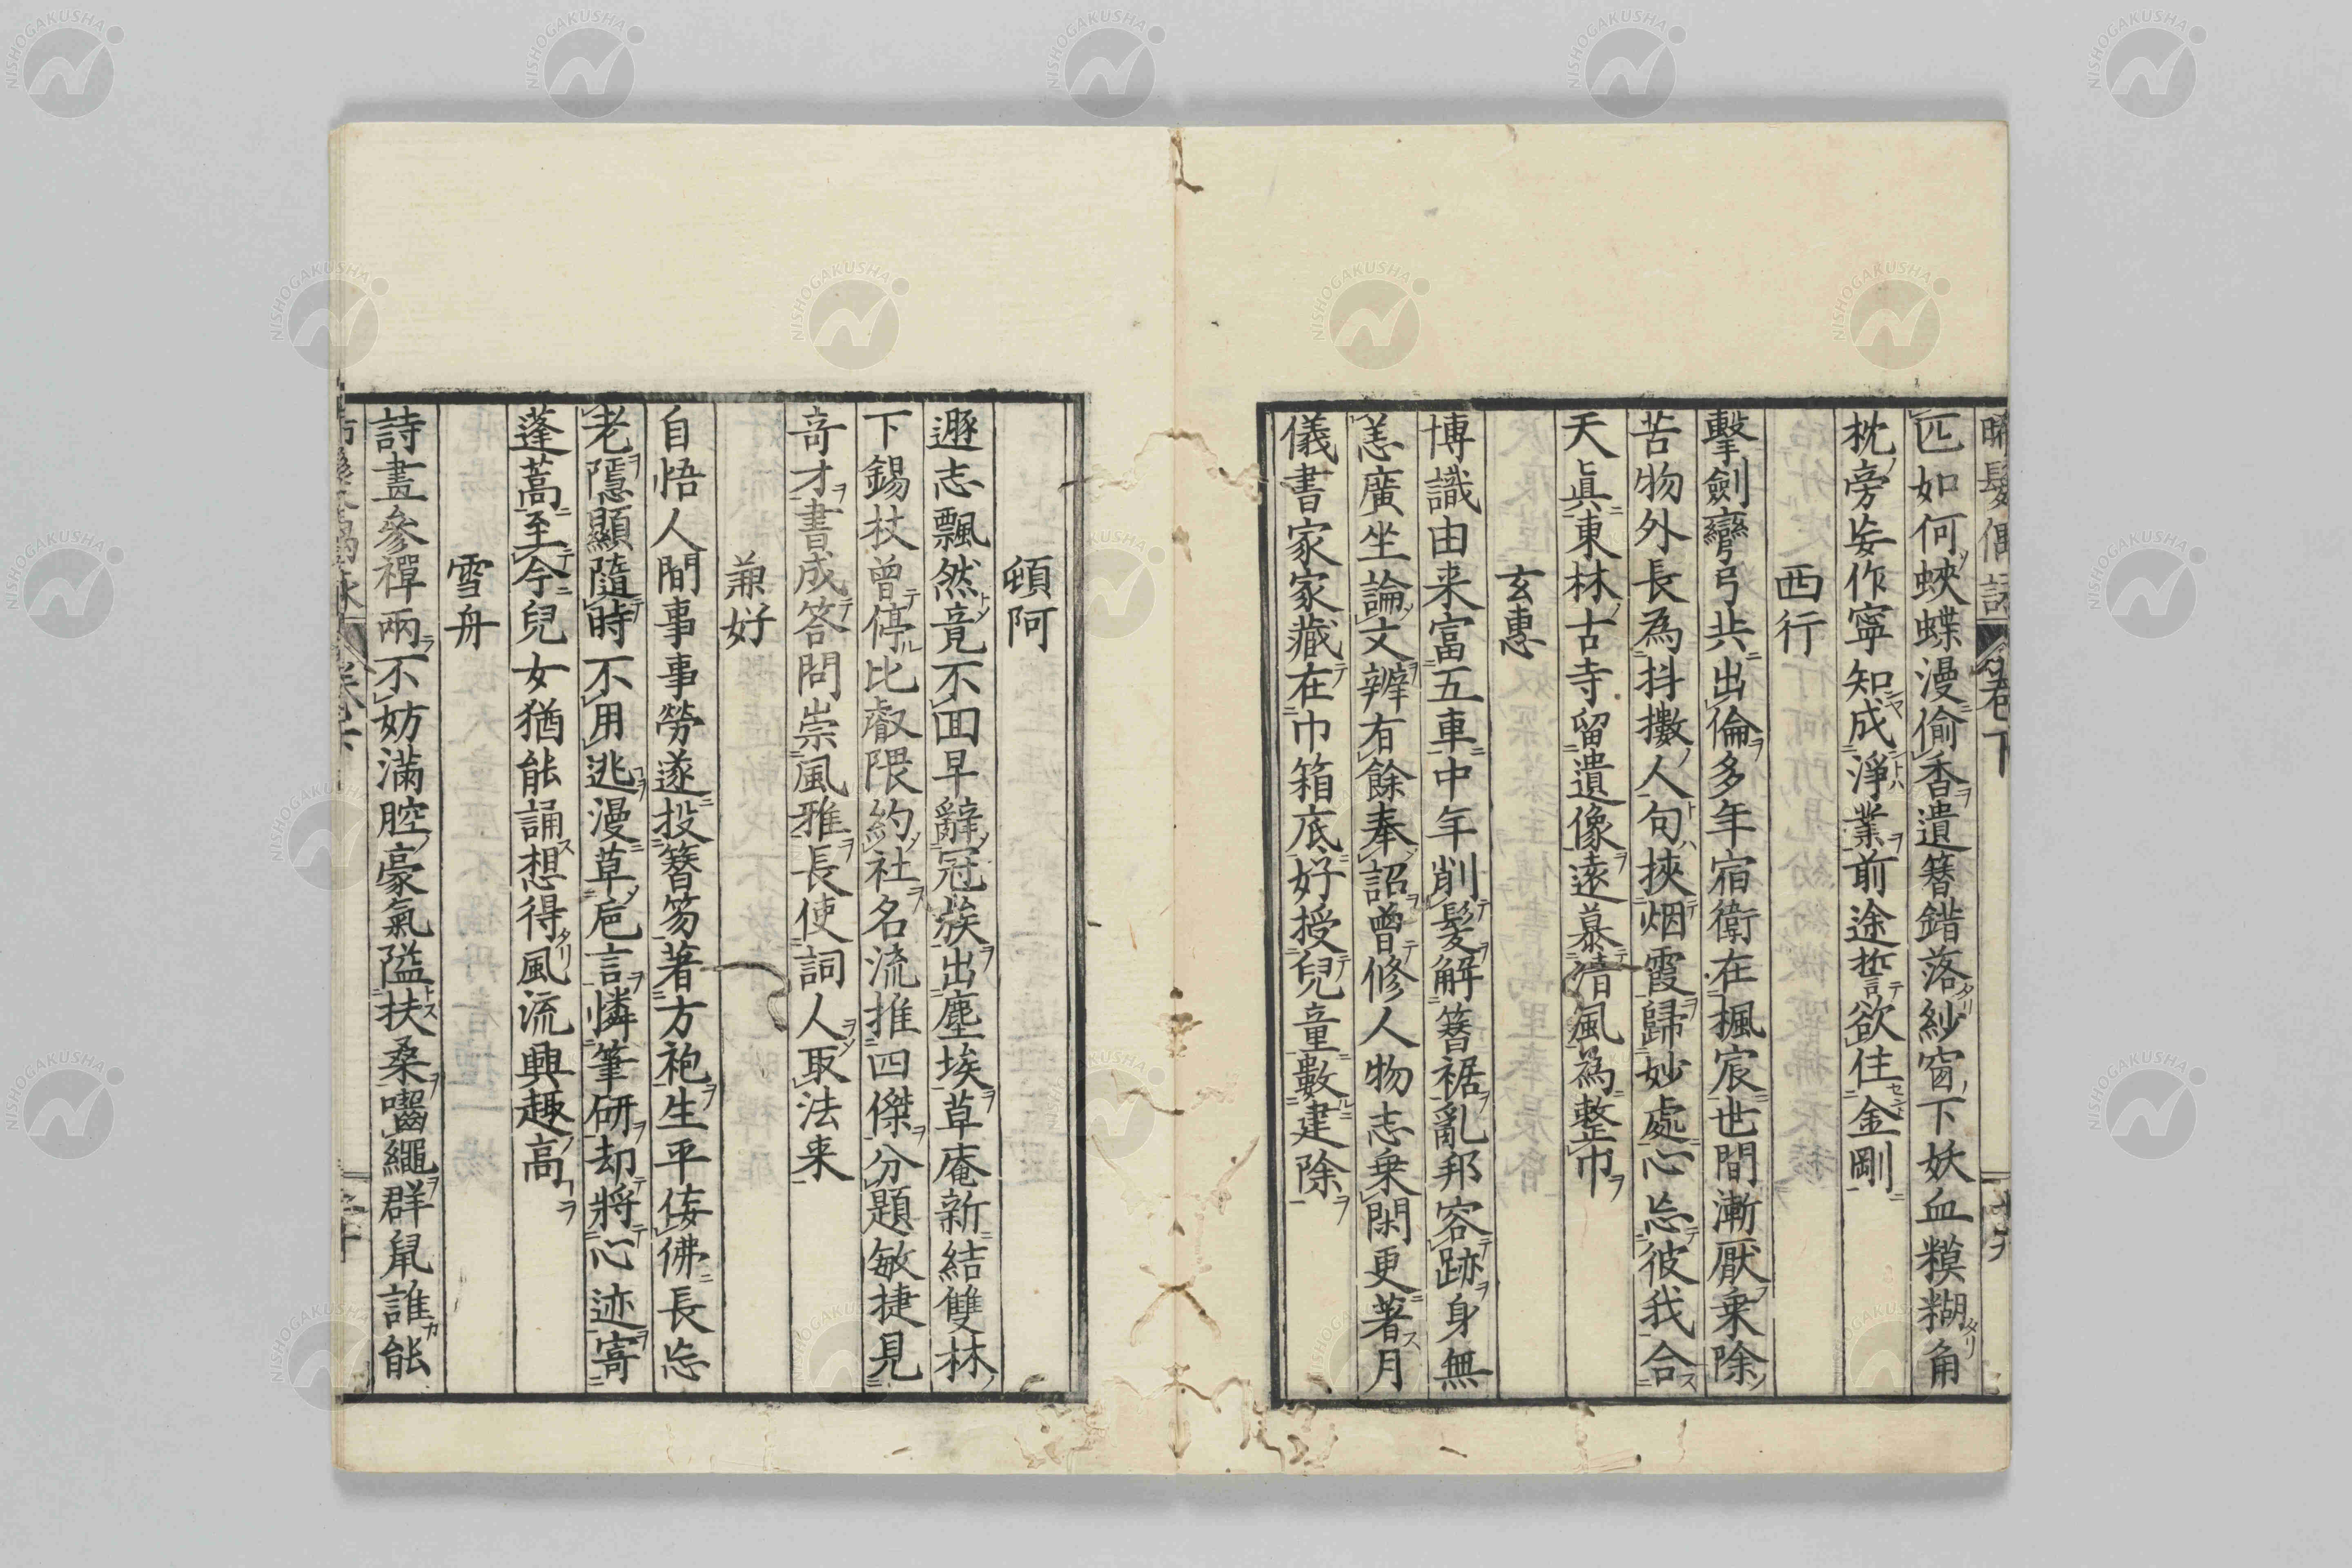 晞髮偶詠 卷下
匹如何蛺蝶漫偷香遺簪錯落紗窗下妖血糢糊角
枕旁妄作寧知成淨業前途誓欲住金剛
西行
擊劍彎弓共出倫多年宿衛在楓宸世間漸厭乘除
苦物外長為抖擻人句挾烟霞歸妙處心忘彼我合
天眞東林古寺留遺像遠慕淸風為整巾
玄惠
博識由来富五車中年削髮解簪裾亂邦容跡身無
恙廣坐論文辨有餘奉詔曾修人物志乘閑更著月
儀書家家藏在巾箱底好授兒童數建除
頓阿
遯志飄然竟不回早辭冠蔟出塵埃草庵新結雙林
下錫杖曾停比叡隈約社名流推四傑分題敏捷見
奇才書成答問崇風雅長使詞人取法来
兼好
自悟人間事事勞遂投簪笏著方袍生平侫佛長忘
老隱顯隨時不用逃漫草巵言憐筆研却將心迹寄
蓬蒿至今兒女猶能誦想得風流興趣高
雪舟
詩畫參禪兩不妨滿腔豪氣隘扶桑囓繩群鼠誰能
NISHOGAKUSHA